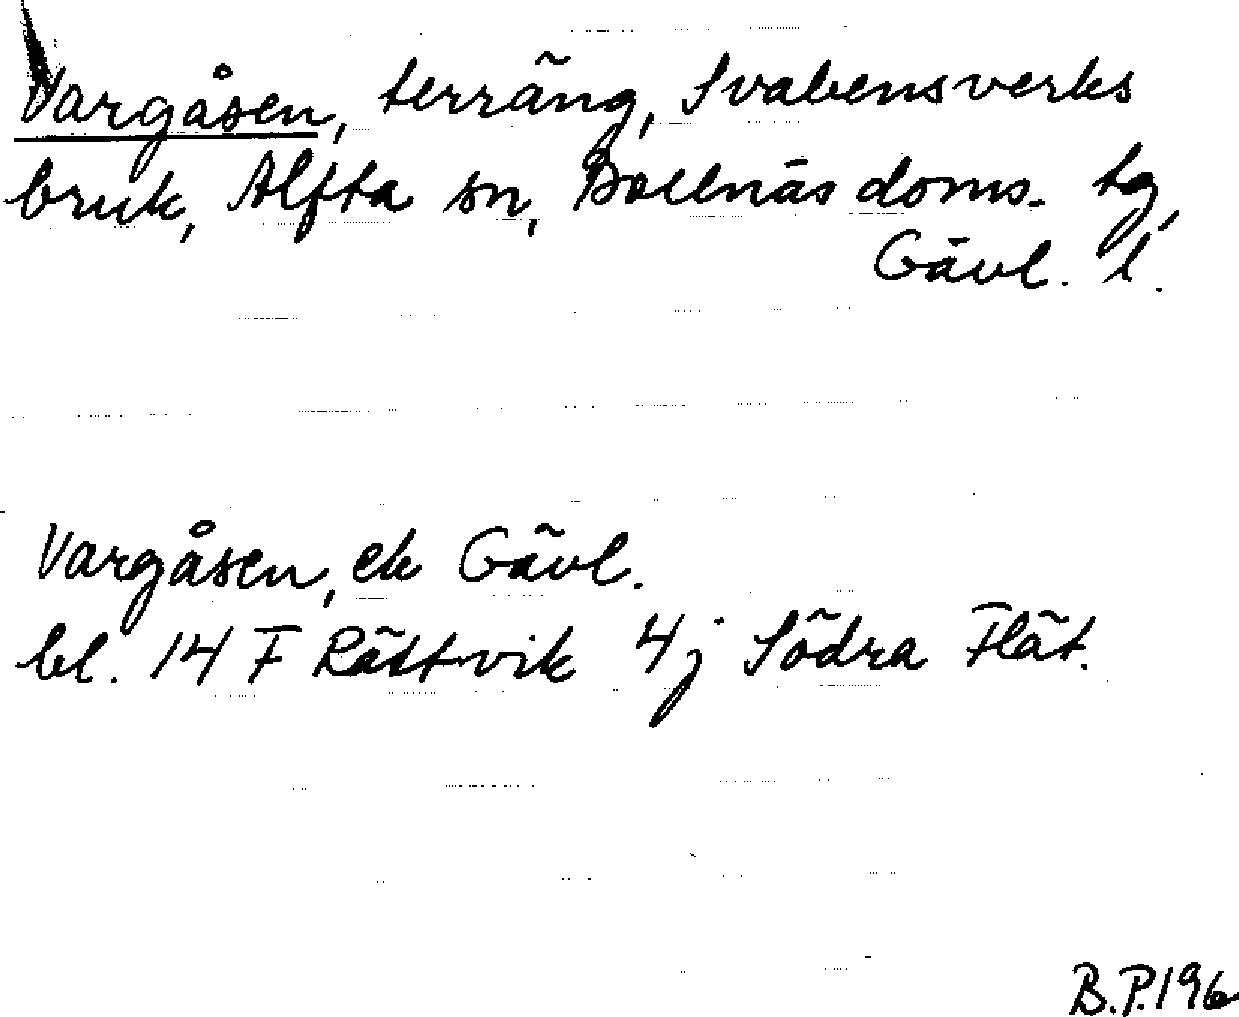 Vargåsen, terräng, Svabensverks
bruk, Alfta sn, Bollnäs doms. tg,
Gävl. l.
Vargåsen, ek Gävl.
bl. 14 F Rättvik 4j Södra Flät.
B.P.196